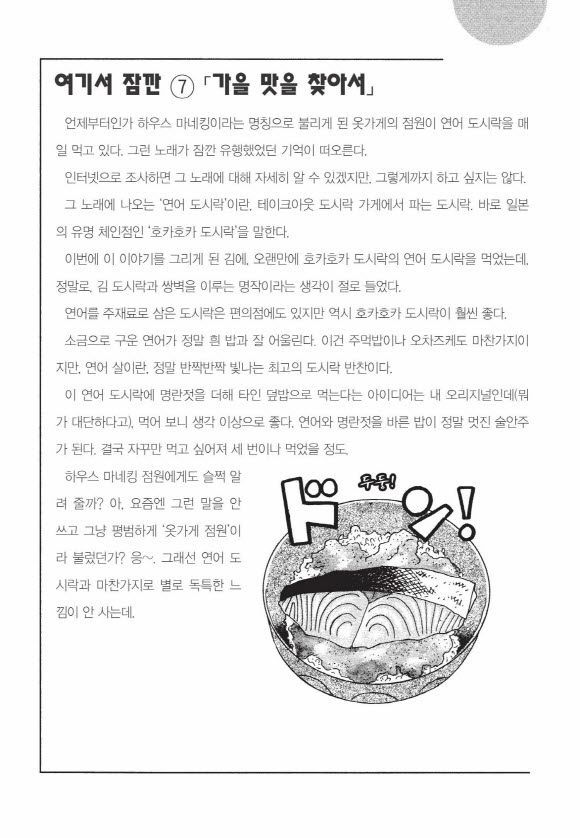 여기서 잠깐 ⑦ 「가을 맛을 찾아서」
언제부터인가 하우스 마네킹이라는 명칭으로 불리게 된 옷가게의 점원이 연어 도시락을 매
일 먹고 있다. 그런 노래가 잠깐 유행했었던 기억이 떠오른다.
인터넷으로 조사하면 그 노래에 대해 자세히 알 수 있겠지만, 그렇게까지 하고 싶지는 않다.
그 노래에 나오는 '연어 도시락'이란, 테이크아웃 도시락 가게에서 파는 도시락. 바로 일본
의 유명 체인점인 '호카호카 도시락'을 말한다.
이번에 이 이야기를 그리게 된 김에, 오랜만에 호카호카 도시락의 연어 도시락을 먹었는데,
정말로, 김 도시락과 쌍벽을 이루는 명작이라는 생각이 절로 들었다.
연어를 주재료로 삼은 도시락은 편의점에도 있지만 역시 호카호카 도시락이 훨씬 좋다.
소금으로 구운 연어가 정말 흰 밥과 잘 어울린다. 이건 주먹밥이나 오차즈케도 마찬가지이
지만, 연어 살이란, 정말 반짝반짝 빛나는 최고의 도시락 반찬이다.
이 연어 도시락에 명란젓을 더해 타인 덮밥으로 먹는다는 아이디어는 내 오리지널인데(뭐
가 대단하다고), 먹어 보니 생각 이상으로 좋다. 연어와 명란젓을 바른 밥이 정말 멋진 술안주
가 된다. 결국 자꾸만 먹고 싶어져 세 번이나 먹었을 정도.
하우스 마네킹 점원에게도 슬쩍 알
려 줄까? 아, 요즘엔 그런 말을 안
쓰고 그냥 평범하게 '옷가게 점원'이
라 불렀던가? 응~. 그래선 연어 도
시락과 마찬가지로 별로 독특한 느
낌이 안 사는데.
두둥!
ドーン!